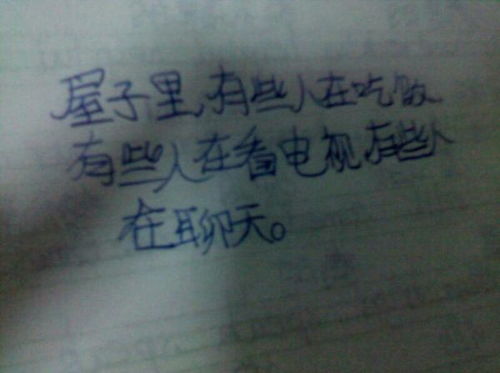 屋子里,有些人在吃饭
有些人在看电视,有些人
在聊天。